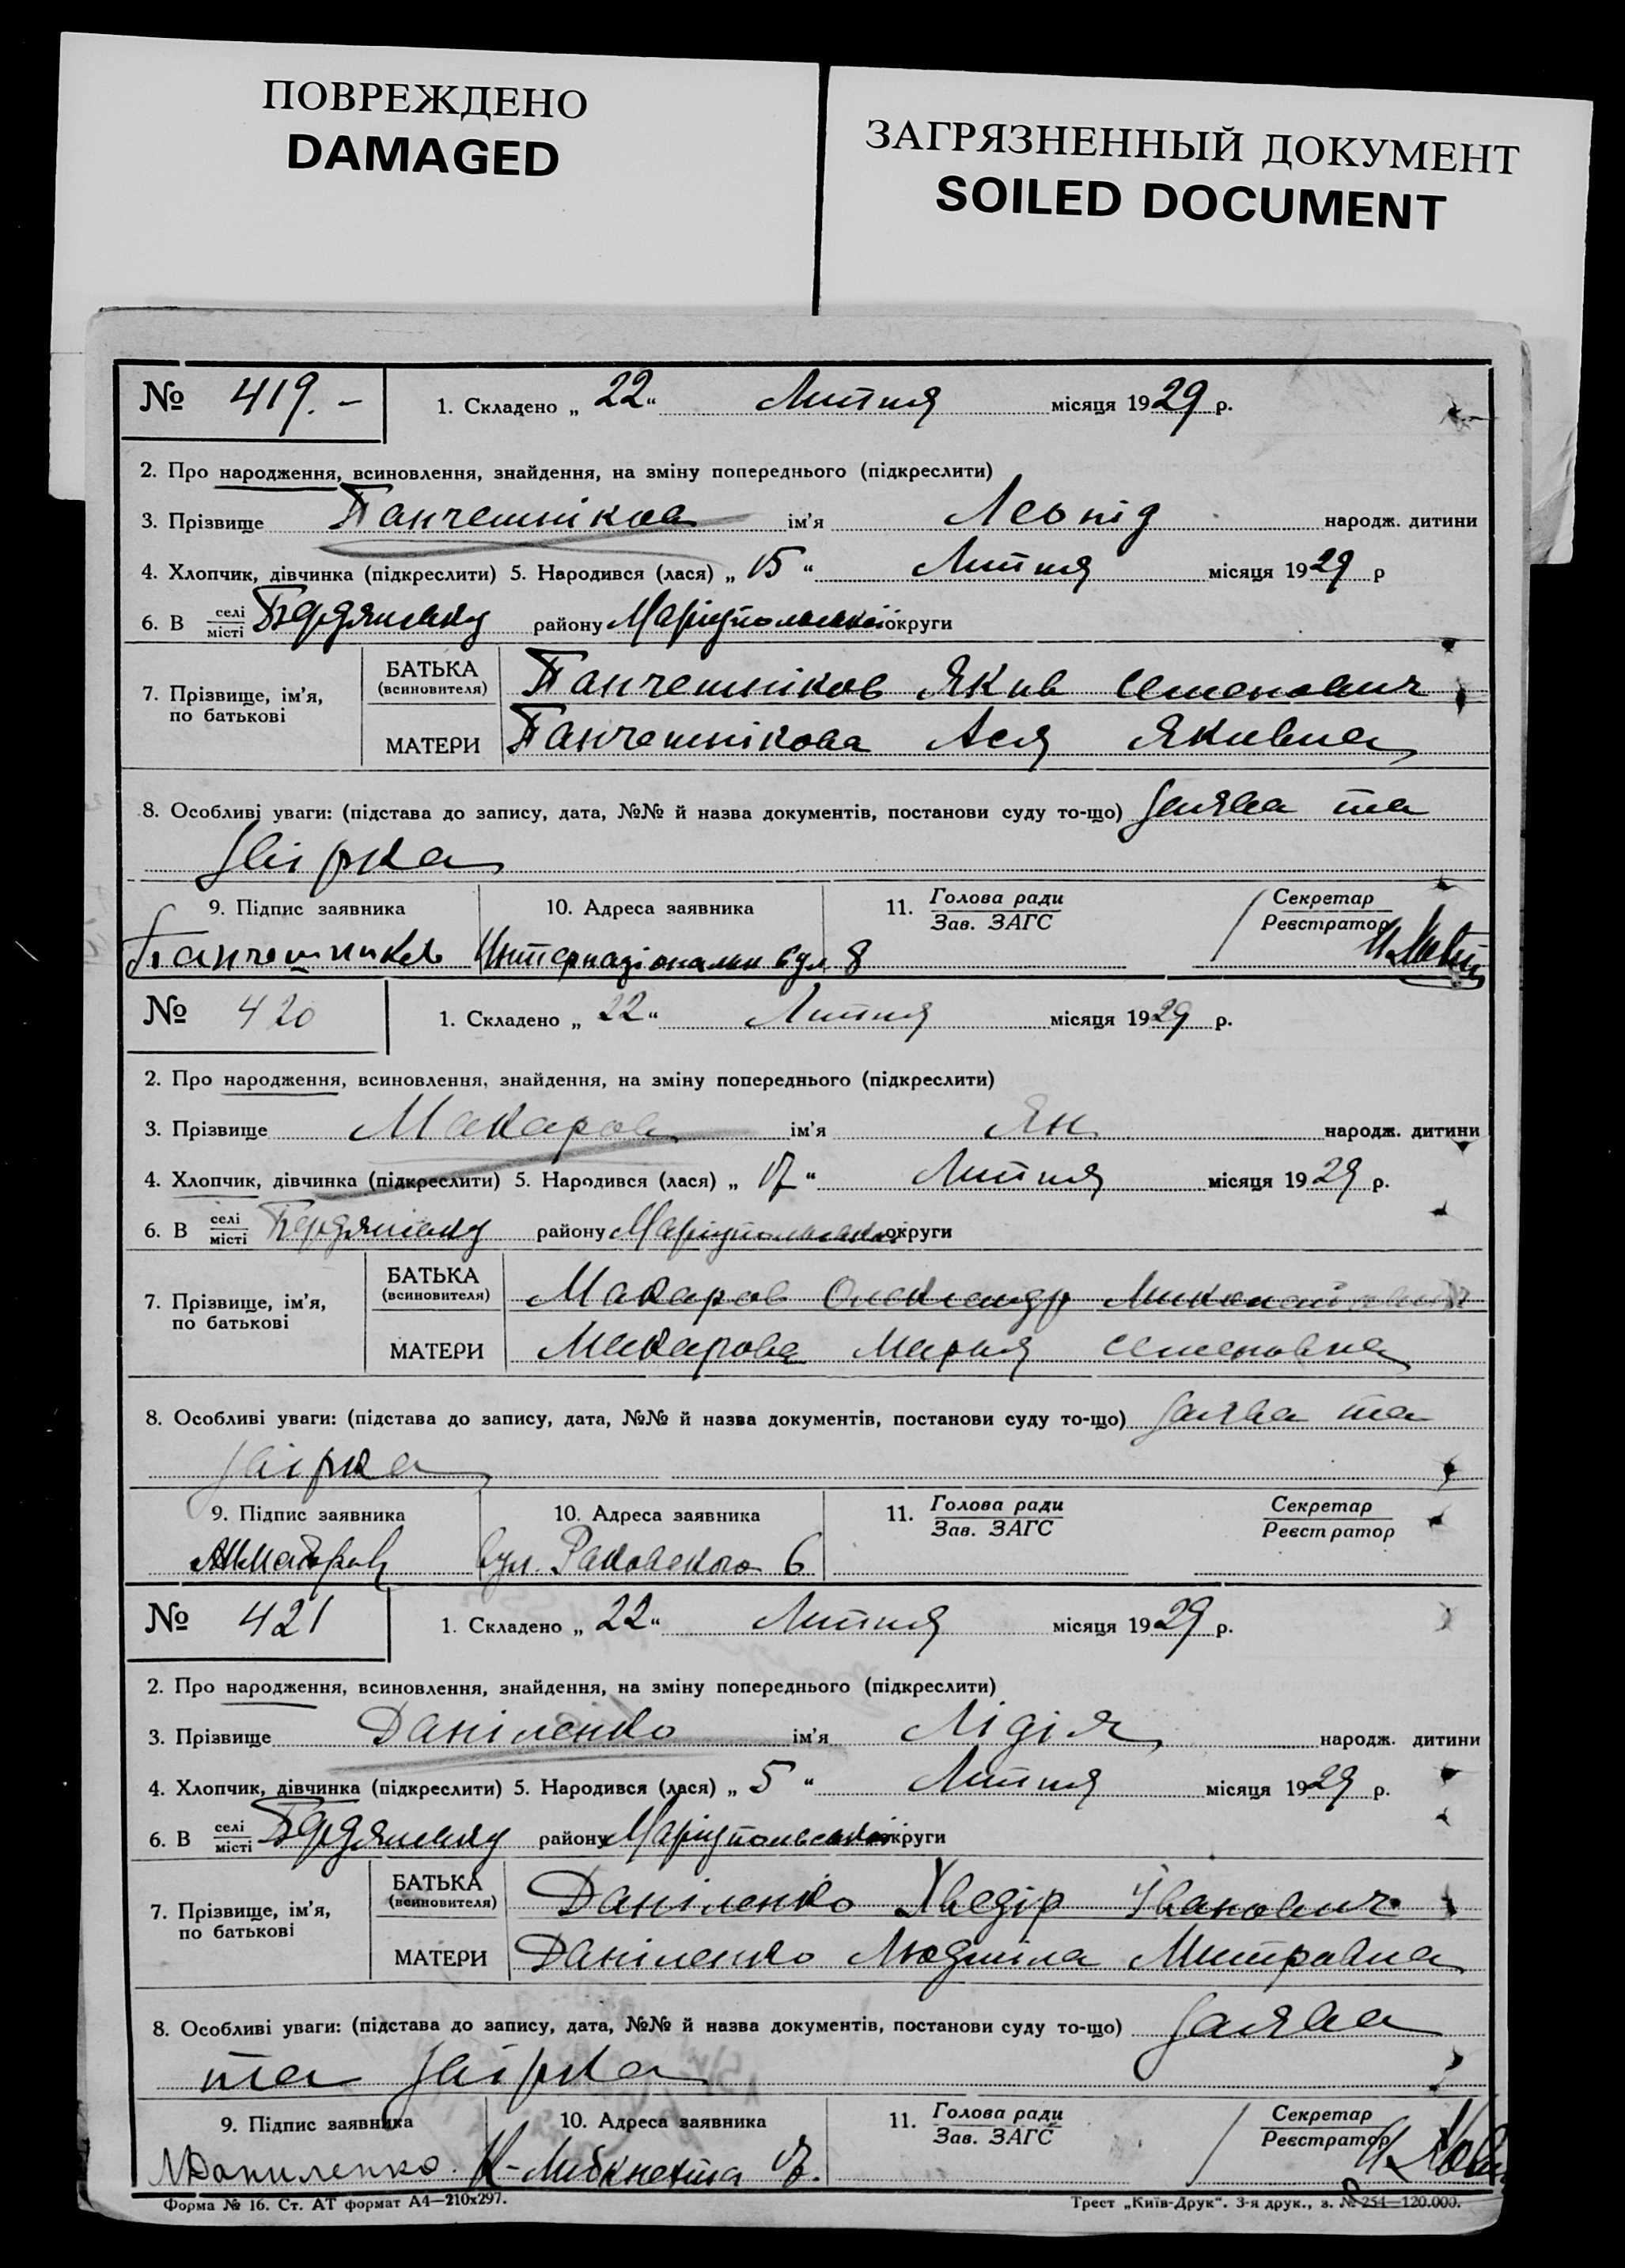 ПОВРЕЖДЕНО
DAMAGED
ЗАГРЯЗНЕННЫЙ ДОКУМЕНТ
SOILED DOCUMENT
№ 419.- 1. Складено „ 22 “ Липня місяця 1929 р.
2. Про народження, всиновлення, знайдення, на зміну попереднього (підкреслити)
3. Прізвище Панчешніков ім'я Леонід народж. дитини
4. Хлопчик, дівчинка (підкреслити) 5. Народився (лася) „ 15 “ Липня місяця 1929 р
6. В селі місті Бердянську району Маріупольської округи
7. Прізвище, ім'я, по батькові
БАТЬКА (всиновителя) Панчешніков Яків Семенович
МАТЕРИ Панчешнікова Ася Яківна
8. Особливі уваги: (підстава до запису, дата, №№ й назва документів, постанови суду то-що) Заява та
звірка
9. Підпис заявника 10. Адреса заявника 11. Голова ради Зав. ЗАГС Секретар Реєстратор
Панчешников Интернаціонали вул 8
№ 420 1. Складено „ 22 “ Липня місяця 1929 р.
2. Про народження, всиновлення, знайдення, на зміну попереднього (підкреслити)
3. Прізвище Макаров ім'я Ян народж. дитини
4. Хлопчик, дівчинка (підкреслити) 5. Народився (лася) „ 17 “ Липня місяця 1929 р.
6. В селі місті Бердянську району Маріупольської округи
7. Прізвище, ім'я, по батькові
БАТЬКА (всиновителя) Макаров Олександр Миколайович
МАТЕРИ Макарова Мария Семеновна
8. Особливі уваги: (підстава до запису, дата, №№ й назва документів, постанови суду то-що) Заява та
звірка
9. Підпис заявника 10. Адреса заявника 11. Голова ради Зав. ЗАГС Секретар Реєстратор
вул. Раковского 6
№ 421 1. Складено „ 22 “ Липня місяця 1929 р.
2. Про народження, всиновлення, знайдення, на зміну попереднього (підкреслити)
3. Прізвище Даніленко ім'я Лідія народж. дитини
4. Хлопчик, дівчинка (підкреслити) 5. Народився (лася) „ 5 “ Липня місяця 1929 р.
6. В селі місті Бердянську району Маріупольської округи
7. Прізвище, ім'я, по батькові
БАТЬКА (всиновителя) Даніленко Хведір Іванович
МАТЕРИ Даніленко Людміла Митровна
8. Особливі уваги: (підстава до запису, дата, №№ й назва документів, постанови суду то-що) Заява
та звірка
9. Підпис заявника 10. Адреса заявника 11. Голова ради Зав. ЗАГС Секретар Реєстратор
Даниленко. К-Либкнехта 7.
Форма № 16. Ст. АТ формат А4—210х297. Трест „Київ-Друк“. 3-я друк., з. № 254—120.000.